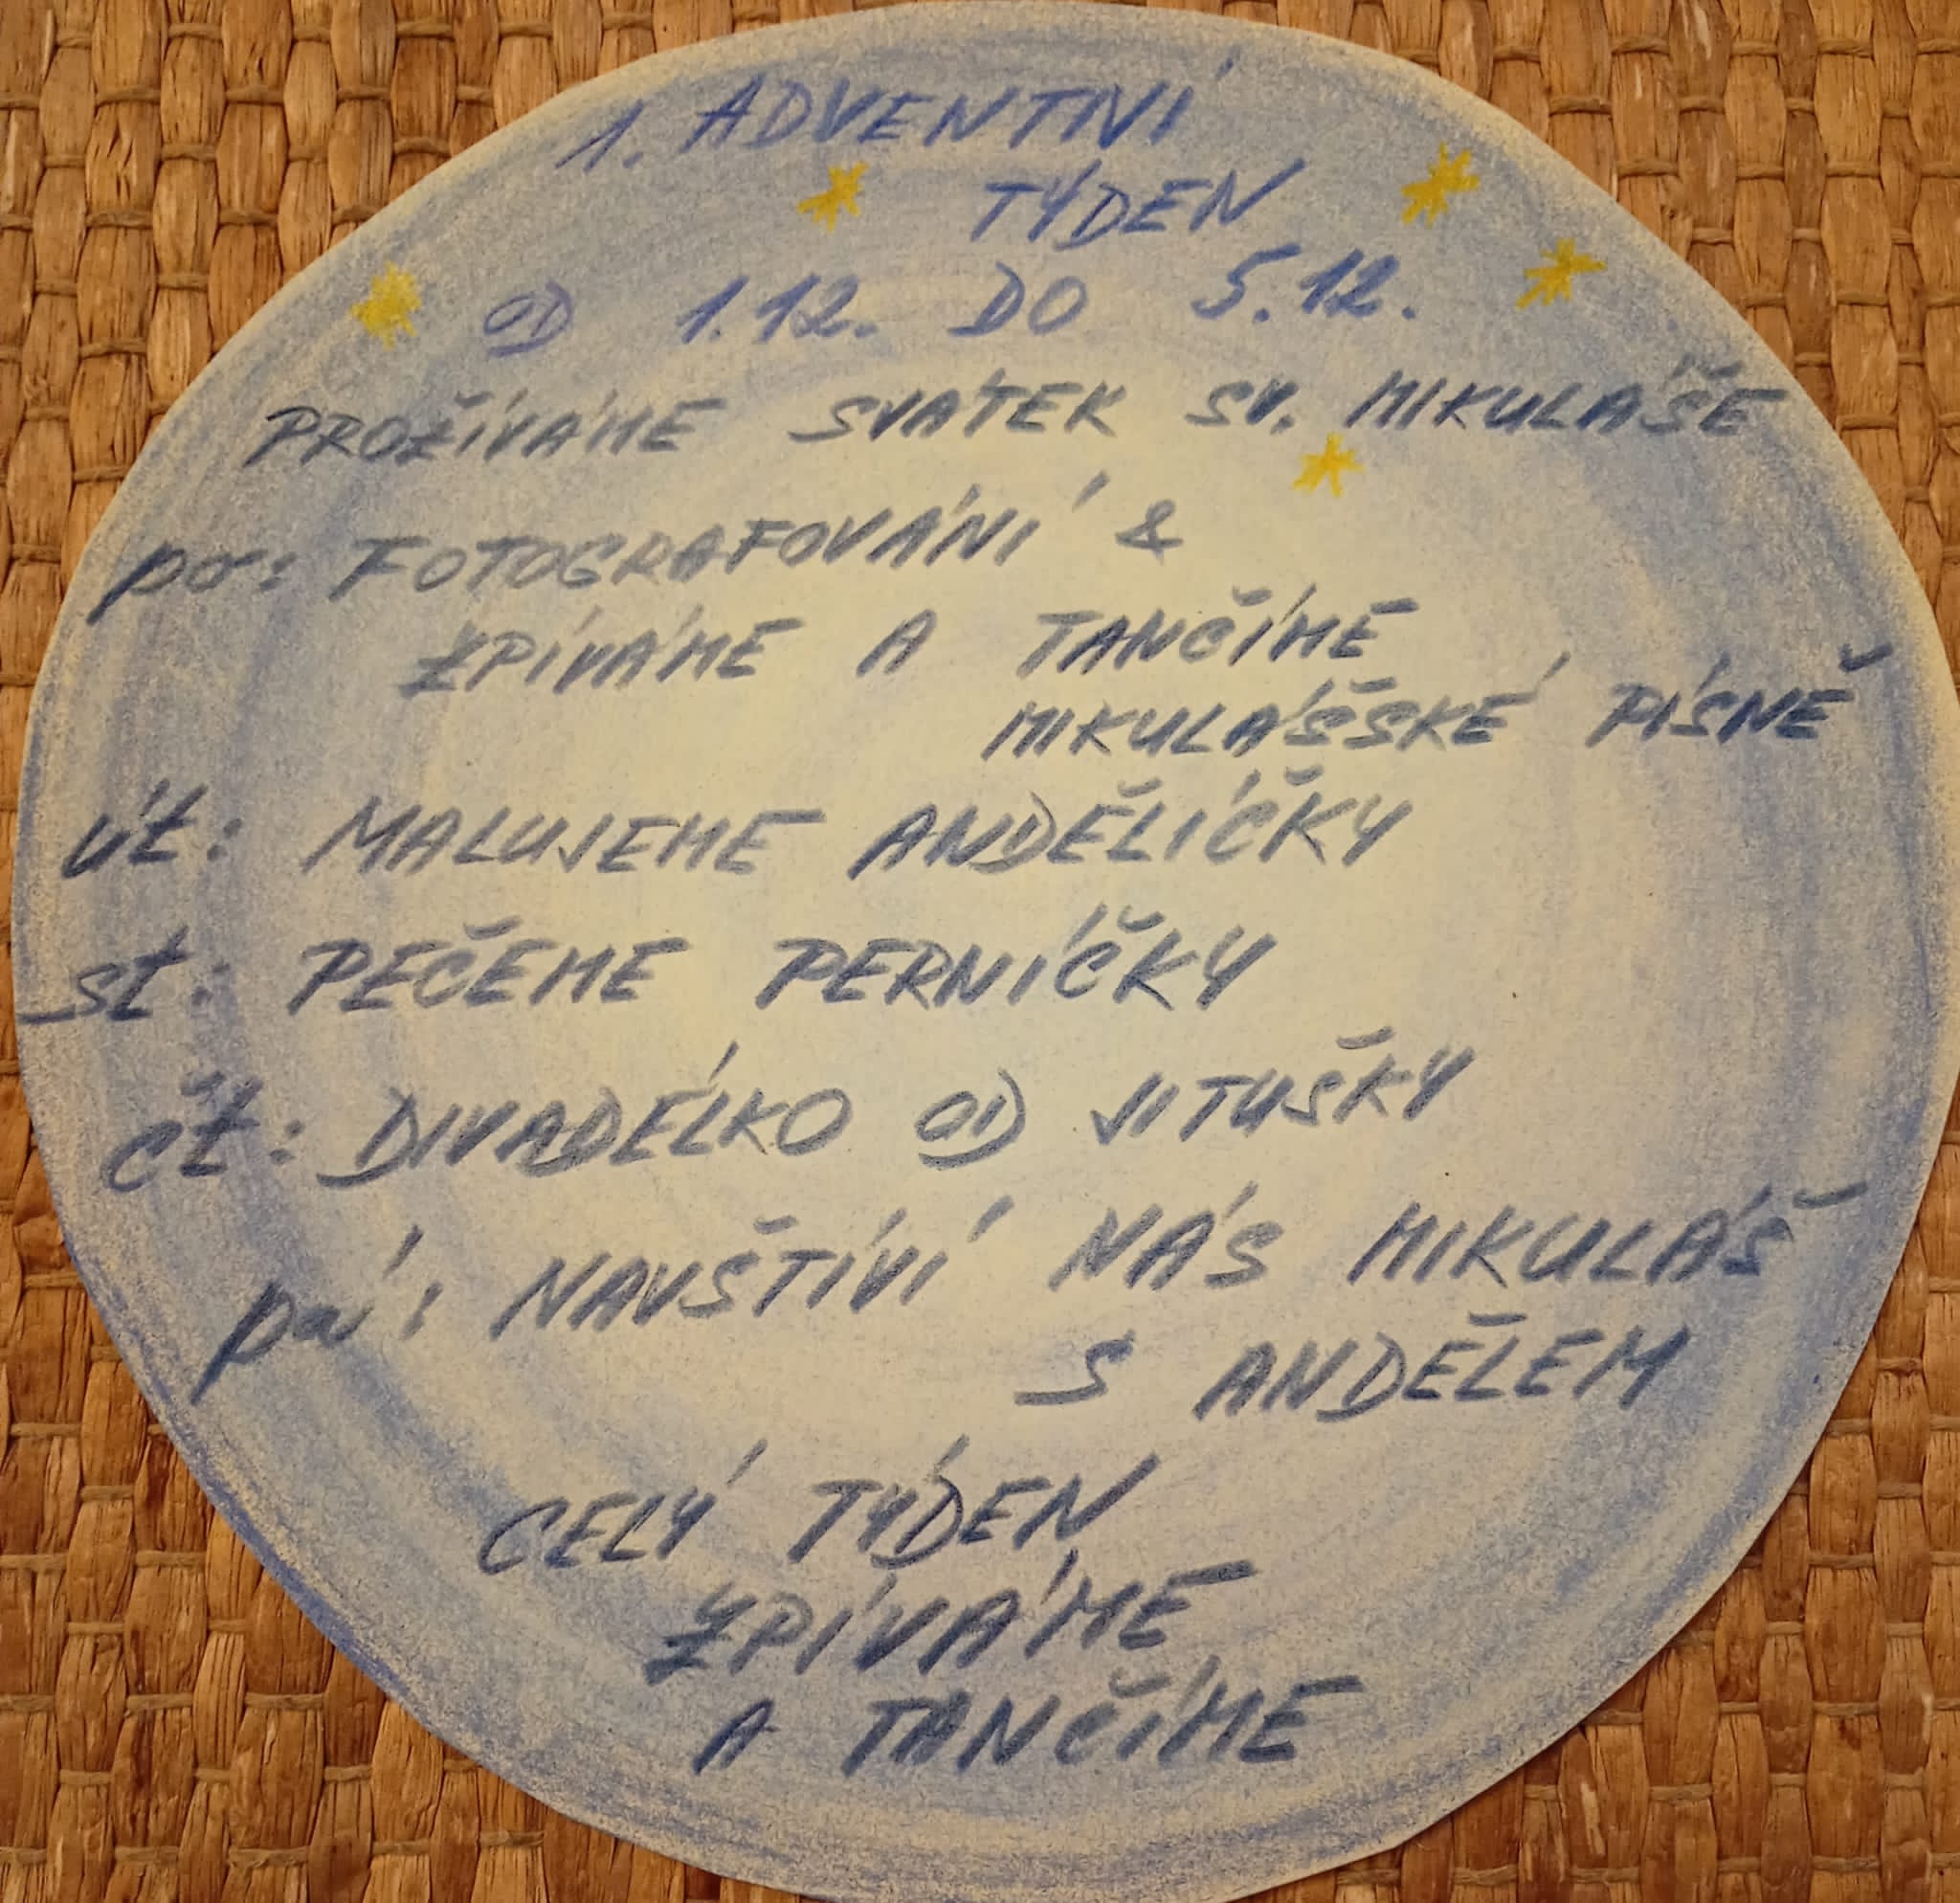 1. ADVENTNÍ
TÝDEN
OD 1.12. DO 5.12.
PROŽÍVÁME SVÁTEK SV. MIKULÁŠE
po: FOTOGRAFOVÁNÍ &
ZPÍVÁME A TANČÍME
MIKULÁŠSKÉ PÍSNĚ
út: MALUJEME ANDĚLÍČKY
st: PEČEME PERNÍČKY
čt: DIVADÉLKO OD JITUŠKY
pá: NAVŠTÍVÍ NÁS MIKULÁŠ
S ANDĚLEM
CELÝ TÝDEN
ZPÍVÁME
A TANČÍME